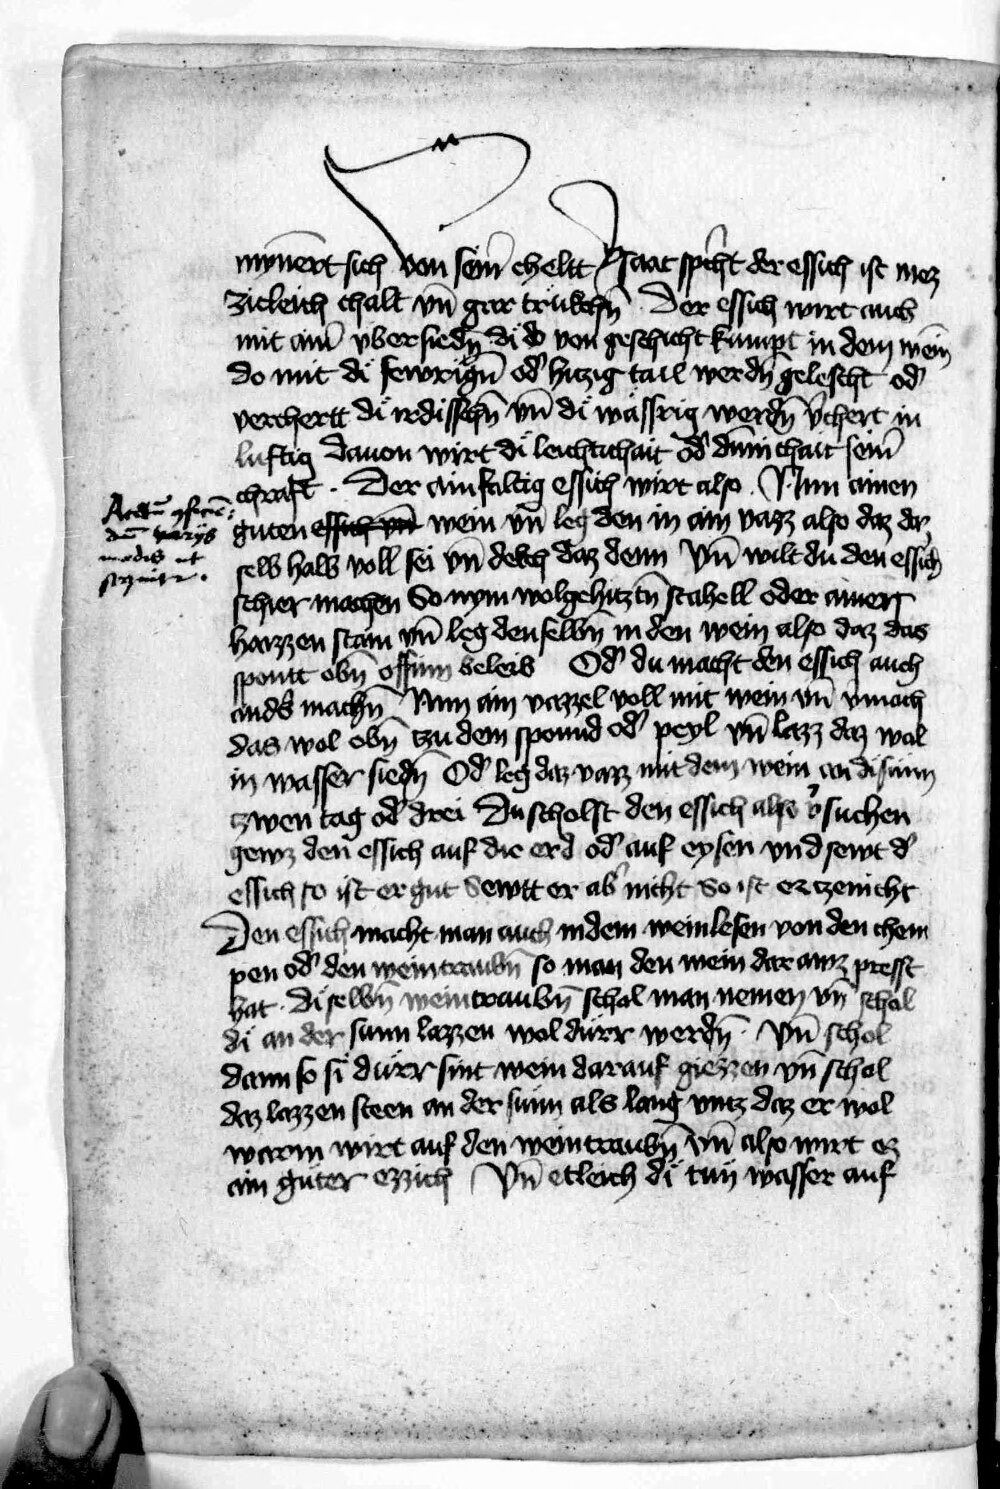 mynn̄ert sich von sein̄ cheltt Ysaac sp̄cht der essich ist mez
zicleich chalt vn̄ gror trukchn̄ Der essich wirt auch
mit ain̄ vbersiedn̄ di do von geschicht kumpt in dem wein
do mit di fewrign̄ od᾽ hitzig tail werdn̄ gelescht od᾽
verchertt di irdisschn̄ vn̄ di wässrig werdn̄ v᾽chert in
luftig dauon wirt di leichtichait od᾽ dünichait sein̄
chraft . Der ainfaltig essich wirt also . Nym ainen
guten essich vn̄ wein vn̄ leg den in ain vazz also daz daz
selb halb voll sei vn̄ dekch daz denn Vn̄ wilt du den essich
schier machen So nym wolgehitztn̄ stahell oder ainen
hazzen stain vn̄ leg denselbn̄ in den wein also daz das
spontt obn̄ offinn beleib Od᾽ du macht den essich auch
anders machn̄ Nym ain vazzel voll mit wein vn̄ v᾽mach
das wol obn̄ tzu dem spound od᾽ peyl vn̄ lazz daz wol
in wasser siedn̄ Od᾽ leg daz vazz mit dem wein an di sünn
tzwen tag od᾽ drei Du scholst den essich also v᾽suchen
gewz den essich auf die erd od᾽ auf eysen vnd sewt d᾽
essich so ist er gut Sewtt er ab᾽ nicht So ist er tzenicht
Den essich macht man auch in dem weinlesen von den chem
pen od᾽ den weintraubn̄ so man den wein dar auz presst
hat . Di selbn̄ weintraubn̄ schol man nemen vn̄ schol
di an der sunn lazzen wol dürr werdn̄ . Vn̄ schol
dann so si dürr sint wein darauf giezzen vn̄ schol
daz lazzen steen an der sunn als lang vntz daz er wol
warm wirt auf den weintraubn̄ vn̄ also wirt ez
ain guter ezzich Vn̄ etleich di tun wasser auf
Acetū conficiē-
dū varijs
modis ut